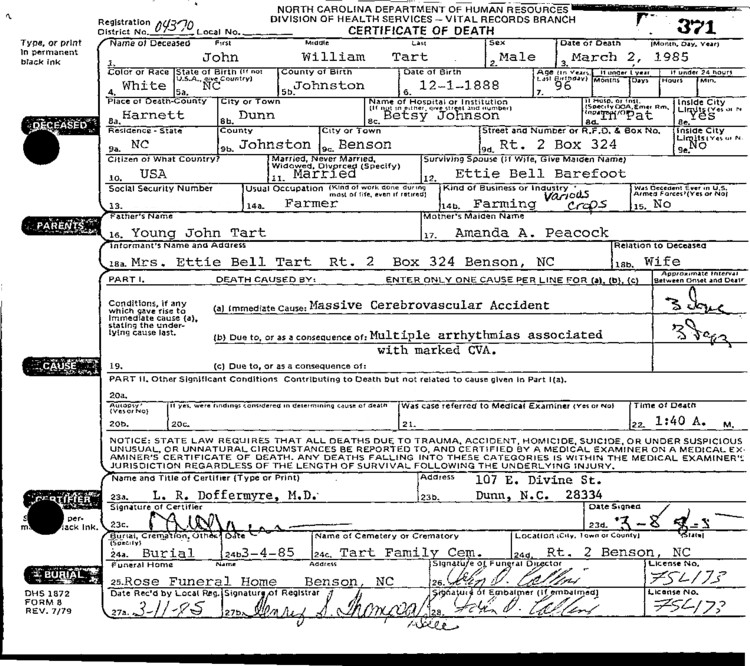 NORTH CAROLINA DEPARTMENT OF HUMAN RESOURCES
DIVISION OF HEALTH SERVICES – VITAL RECORDS BRANCH
CERTIFICATE OF DEATH
371
Registration District No. 04370 Local No.
Type, or print in permanent black ink
Name of Deceased First Middle Last Sex Date of Death (Month, Day, Year)
1. John William Tart 2. Male 3. March 2, 1985
Color or Race State of Birth (If not U.S.A., give Country) County of Birth Date of Birth Age (In Years, Last Birthday) If under 1 year Months Days If under 24 hours Hours Min.
4. White 5a. NC 5b. Johnston 6. 12-1-1888 7. 96
Place of Death-County City or Town Name of Hospital or Institution (If not in either, give street and number) If Hosp. or Inst. (Specify DOA, Emer Rm, Inpatient/OP) Inside City Limits (Yes or N
8a. Harnett 8b. Dunn 8c. Betsy Johnson 8d. In Pat 8e. Yes
DECEASED
Residence - State County City or Town Street and Number or R.F.D. & Box No. Inside City Limits (Yes or N
9a. NC 9b. Johnston 9c. Benson 9d. Rt. 2 Box 324 9e. No
Citizen of What Country? Married, Never Married, Widowed, Divorced (Specify) Surviving Spouse (If Wife, Give Maiden Name)
10. USA 11. Married 12. Ettie Bell Barefoot
Social Security Number Usual Occupation (Kind of work done during most of life, even if retired) Kind of Business or Industry Was Decedent Ever in U.S. Armed Forces? (Yes or No)
13. 14a. Farmer 14b. Farming Various Crops 15. No
PARENTS
Father's Name Mother's Maiden Name
16. Young John Tart 17. Amanda A. Peacock
Informant's Name and Address Relation to Deceased
18a. Mrs. Ettie Bell Tart Rt. 2 Box 324 Benson, NC 18b. Wife
PART I. DEATH CAUSED BY: ENTER ONLY ONE CAUSE PER LINE FOR (a), (b), (c) Approximate Interval Between Onset and Death
Conditions, if any which gave rise to immediate cause (a), stating the underlying cause last.
(a) Immediate Cause: Massive Cerebrovascular Accident 3
(b) Due to, or as a consequence of: Multiple arrhythmias associated 3
with marked CVA.
CAUSE
19. (c) Due to, or as a consequence of:
PART II. Other Significant Conditions Contributing to Death but not related to cause given in Part I(a).
20a.
Autopsy? (Yes or No) If yes, were findings considered in determining cause of death Was case referred to Medical Examiner (Yes or No) Time of Death
20b. 20c. 21. 22. 1:40 A. M.
NOTICE: STATE LAW REQUIRES THAT ALL DEATHS DUE TO TRAUMA, ACCIDENT, HOMICIDE, SUICIDE, OR UNDER SUSPICIOUS
UNUSUAL, OR UNNATURAL CIRCUMSTANCES BE REPORTED TO, AND CERTIFIED BY A MEDICAL EXAMINER ON A MEDICAL EX-
AMINER'S CERTIFICATE OF DEATH. ANY DEATHS FALLING INTO THESE CATEGORIES IS WITHIN THE MEDICAL EXAMINER'S
JURISDICTION REGARDLESS OF THE LENGTH OF SURVIVAL FOLLOWING THE UNDERLYING INJURY.
Name and Title of Certifier (Type or Print) Address 107 E. Divine St.
23a. L. R. Doffermyre, M.D. 23b. Dunn, N.C. 28334
CERTIFIER
Signature of Certifier Date Signed
per- ack Ink.
23c. 23d. 3-8
Burial, Cremation, Other (Specify) Date Name of Cemetery or Crematory Location (City, Town or County) (State)
24a. Burial 24b 3-4-85 24c. Tart Family Cem. 24d. Rt. 2 Benson, NC
Funeral Home Name Address Signature of Funeral Director License No.
BURIAL
25. Rose Funeral Home Benson, NC 26. John D. Collins FSL173
DHS 1872
FORM 8
REV. 7/79
Date Rec'd by Local Reg. Signature of Registrar Signature of Embalmer (If embalmed) License No.
27a. 3-11-85 27b. Henry S. Thompson 28. John D. Collins FSL173